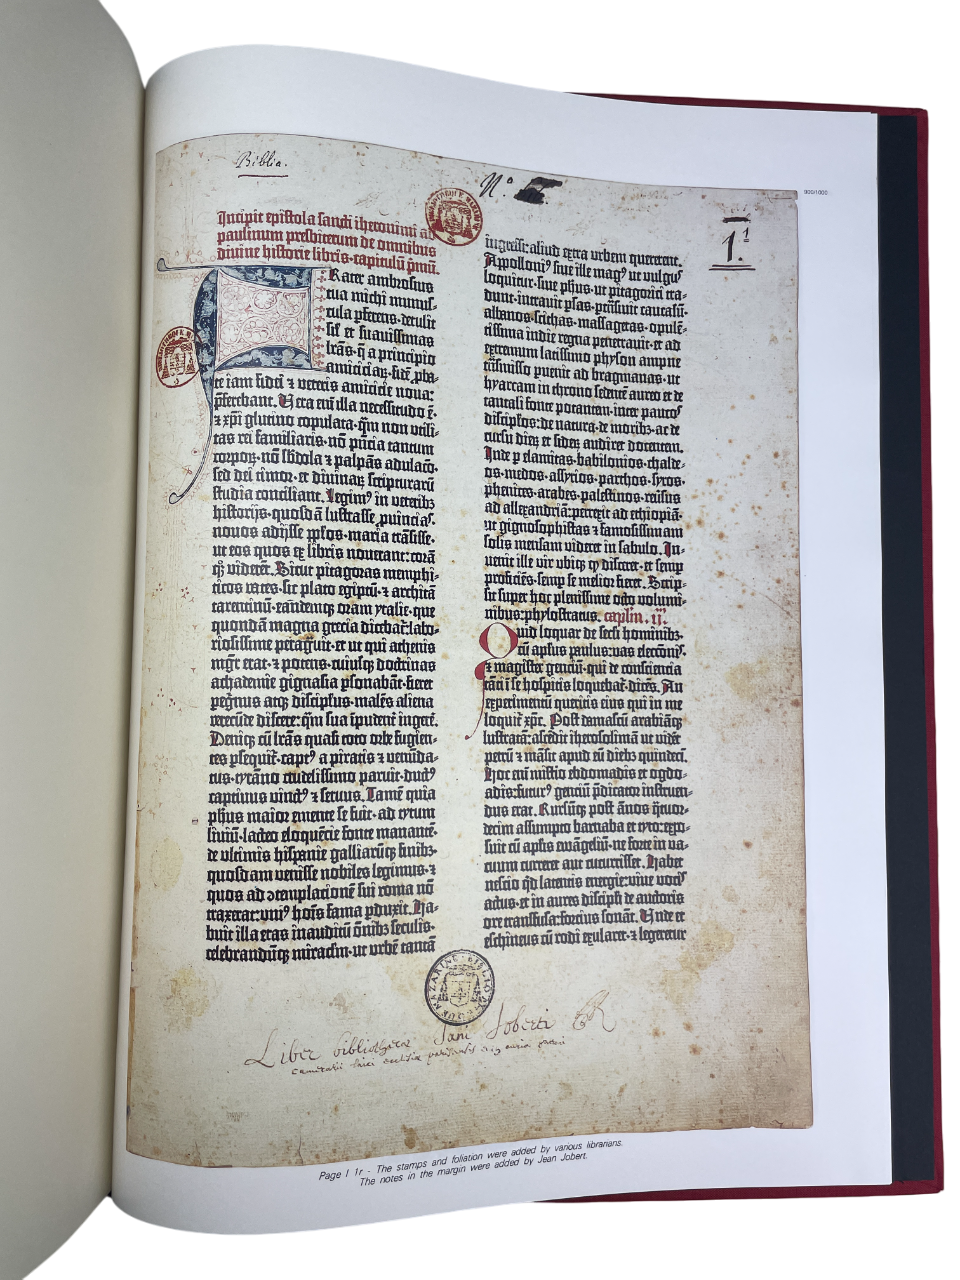 Biblia.
Nº
900/1000
1.1
Incipit epistola sancti iheronimi ad
paulinum presbiterum de omnibus
divine historie libris·capitulū pmū.
Frater ambrosius
tua michi munus-
cula pferens·detulit
sił et suavissimas
lrās·q̄ a principio
amiciciaꝝ·fidē pba-
te iam fidei ⁊ veteris amicicie nova:
pferebant. Vera enī illa necessitudo ē·
⁊ xpi glutino copulata·qm non utili-
tas rei familiaris·nō pñcia tantum
corpoꝝ·nō sbdola ⁊ palpās adulacō·
sed dei timor·et divinaꝝ scripturarū
studia conciliant. Legimꝰ in veteribꝫ
historijs·quosdā lustrasse ꝓvincias·
novos adijsse ppłos·maria trāsisse·
ut eos quos ex libris noverant: corā
qꝫ viderēt. Sicut pitagoras memphi-
ticos vates·sic plato egiptū·⁊ architā
tarentinū·eandemqꝫ oram ytalie·que
quondā magna grecia dicebaṫ: labo-
riosissime peragͣvit·et ut qui athenis
mgr̄ erat·⁊ potens·cuiusqꝫ doctrinas
achademie gignasia psonabāt·fieret
pegrinus atqꝫ discipłus·malēs aliena
verecūde discere: qm sua īpudent ingere.
Deniqꝫ cū lrās quasi toto orbe fugien-
tes psequit·captꝰ a piratis ⁊ venūda-
tus·tyrāno crudelissimo paruit·ductꝰ
captivus vinctꝰ ⁊ servus. Tamē quia
phus maior emente se fuit·ad tytum
liviū·lacteo eloquēcie fonte manantē·
de ultimis hispanie galliarūqꝫ finibꝫ·
quosdam venisse nobiles legimus·⁊
quos ad ↄtemplacionē sui roma nō
traxerat: uniꝰ hoīs fama pduxit. Ha-
buit illa etas inauditū ōnibꝫ seculis·
celebrandūqꝫ miraclm·ut urbē tantā
ingressi: aliud extra urbem quererent.
Apolloniꝰ sive ille magꝰ ut vulgus
loquitur·sive phus·ut pitagorici tra-
dunt·intravit psas·ptrāsivit caucasū·
albanos·scithas·massagetas·opulē-
tissima indie regna penetravit·et ad
extremum latissimo physon ampne
trāsmisso pvenit ad bragmanas·ut
hyarcam in throno sedentē aureo et de
tantali fonte potantem·inter paucos
discipłos·de natura·de moribꝫ·ac de
cursu dieꝝ et sideꝝ audiret docentem.
Inde p elamitas·babilonios·chalde-
os·medos·assyrios·parthos·syros·
phenices·arabes·palestinos·reversus
ad allexandriā·perrexit ad ethiopiā·
ut gignosophistas ⁊ famosissimam
solis mensam videret in sabulo. In-
venit ille vir ubiqꝫ qꝫ disceret·et semp
proficiēs·semp se melior fieret. Scrip-
sit super hoc plenissime octo volumi-
nibus·phylostratus. caplm. ij.
Quid loquar de secli hominibꝫ·
cū apłus paulus: vas eleccōnis·
⁊ magister gentiū·qui de consciencia
tāti ī se hospitis loquebat·dicēs. An
experimentū queritis eius qui in me
loquit xpc. Post damascū arabiāqꝫ
lustratā: ascēdit iherosolimā ut vidēt
petrū ⁊ māsit apud eū diebꝫ quindeci.
Hoc enī misterio ebdomadis et ogdo-
adis: futurꝰ gentiū pdicator instruen-
dus erat. Rursūqꝫ post ānos qtuor-
decim assumpto barnaba et tyto: expo-
suit cū apłis ewāgeliū·ne forte in va-
cuum curreret aut cucurrisset. Habet
nescio qd latentis energie: vive vocis
actus·et in aures discipłi de auctoris
ore transfusa: forcius sonāt. Unde et
eschineus cū rodi exularet·⁊ legeretur
BIBLIOTHEQUE MAZARINE
Liber bibliothecæ Jani Joberti
Page I 1r - The stamps and foliation were added by various librarians.
The notes in the margin were added by Jean Jobert.